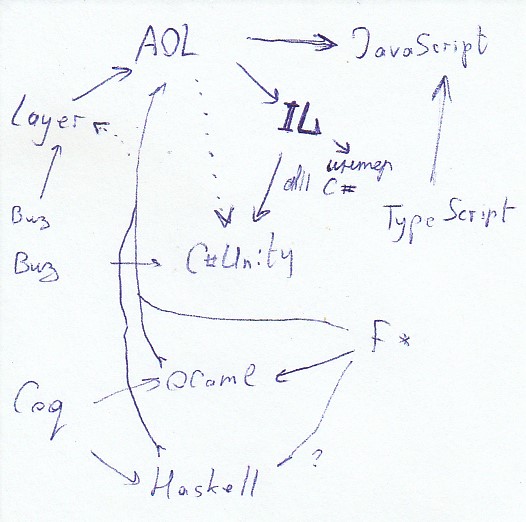 AOL
JavaScript
Layer
IL
dll
интер
C#
Виз
TypeScript
Виз
C#Unity
F*
OCaml
Coq
?
Haskell